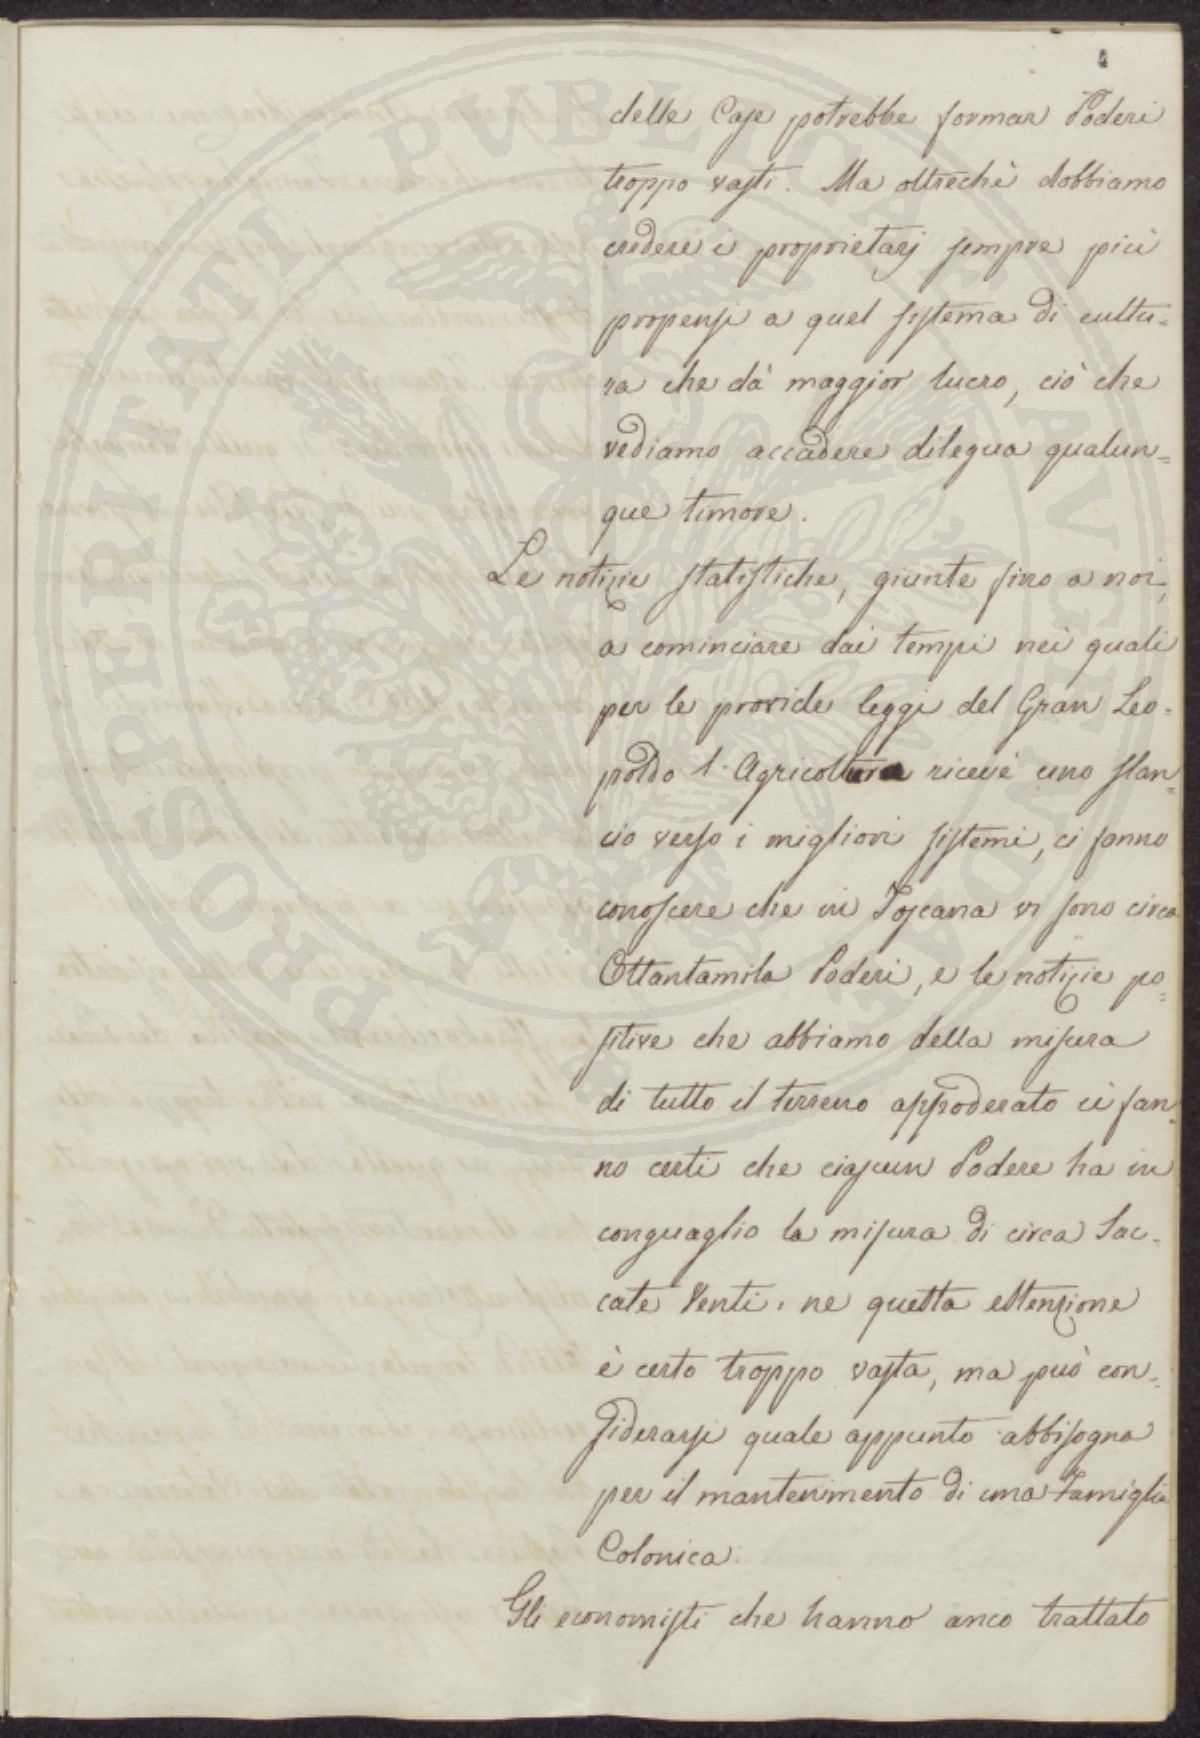 4
delle Case potrebbe formar Poderi
troppo vasti. Ma oltrechè dobbiamo
credere i proprietarj sempre più
propensi a quel sistema di cultu=
ra che dà maggior lucro, ciò che
vediamo accadere dilegua qualun=
que timore.
Le notizie statistiche, giunte fino a noi,
a cominciare dai tempi nei quali
per le provide leggi del Gran Leo=
poldo l'Agricoltura ricevè uno slan=
cio verso i migliori sistemi, ci fanno
conoscere che in Toscana vi sono circa
Ottantamila Poderi, e le notizie po=
sitive che abbiamo della misura
di tutto il terreno appoderato ci fan=
no certi che ciascun Podere ha in
conguaglio la misura di circa Sac=
cate Venti: ne questa estenzione
è certo troppo vasta, ma può con=
siderarsi quale appunto abbisogna
per il mantenimento di una Famiglia
Colonica.
Gli economisti che hanno anco trattato
PROSPERITATI PVBLICAE AVGENDAE